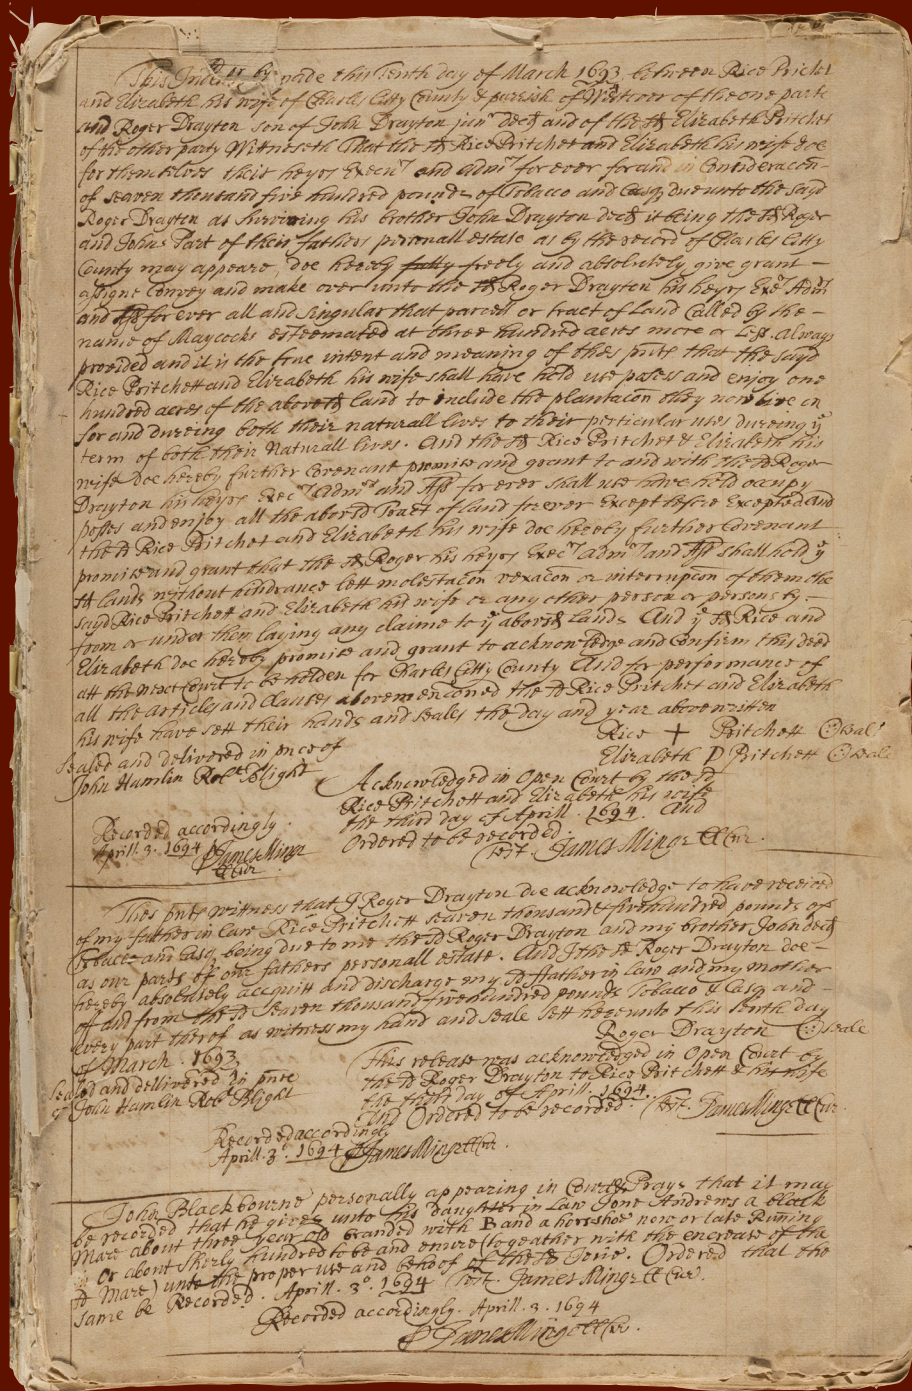 This Indenture made this Tenth day of March 1693 between Rice Prichet
and Elizabeth his wife of Charles Citty County & parrish of Westover of the one parte
and Roger Drayton son of John Drayton junr decd and of the sd Elizabeth Pritchet
of the other party Witneseth That the sd Rice Pritchet and Elizabeth his wife doe
for themselves their heyrs Execrs and Admrs for ever for and in Consideracon
of seaven thousand five hundred pounds of Tobacco and Casq due unto the sayd
Roger Drayton as Surviving his brother John Drayton decd it being the sd Roger
and Johns Part of their fathers personall estate as by the record of Charles Citty
County may appeare, doe hereby fully freely and absolutely give grant
assigne Convey and make over unto the sd Roger Drayton his heyrs Exrs Admrs
and Ass for ever all and singular that parcell or tract of Land Called by the
name of Maycocks esteemated at three hundred acres more or Less. always
provided and it is the true intent and meaning of thes pnts that the sayd
Rice Pritchett and Elizabeth his wife shall have hold use posess and enjoy one
hundred acres of the abovesd land to include the plantacon they now live on
for and dureing both their naturall lives to their perticular uses dureing ye
term of both their Naturall lives. And the sd Rice Pritchet & Elizabeth his
wife Doe hereby further Covenant promise and grant to and with the sd Roger
Drayton his heyrs Execrs Admrs and Ass for ever shall use have hold occupy
posses and enjoy all the abovesd Tract of land forever Except before Excepted And
the sd Rice Pritchet and Elizabeth his wife doe hereby further Covenant
promise and grant that the sd Roger his heyrs Execrs Admrs and Ass shall hold ye
sd lands without hindrance lett molestacon vexacon or interrupcon of them the
sayd Rice Pritchett and Elizabeth his wife or any other person or persons by
from or under them laying any claime to ye abovesd Lands And ye sd Rice and
Elizabeth doe hereby promise and grant to acknowledge and Confirm this deed
att the next Court to be holden for Charles Citty County And for performance of
all the articles and Clauses aforementioned the sd Rice Pritchet and Elizabeth
his wife have sett their hands and seales the day and year above written
Rice + Pritchett Seal
Elizabeth P Pritchett Seale
Sealed and delivered in pnce of
John Hamlin Robt Blight
Acknowledged in Open Court by the sd
Rice Pritchett and Elizabeth his wife
the third day of Aprill. 1694. And
Ordered to be recorded.
Test. James Minge Cl Cur.
Recorded accordingly.
Aprill. 3. 1694
p James Minge
Cl Cur
Thes pnts witness that I Roger Drayton doe acknowledge to have received
of my father in law Rice Pritchett seaven thousand & five hundred pounds of
Tobacco and Casq being due to me the sd Roger Drayton and my brother John decd
as our parts of our fathers personall estate. And I the sd Roger Drayton doe
hereby absolutely acquitt and discharge my sd ffather in law and my mother
of and from the sd Seaven thousand five hundred pounds Tobacco & Casq and
every part therof as witness my hand and seale sett hereunto this tenth day
of March. 1693
Roger Drayton Seale
Sealed and delivered in pnce
of John Hamlin Robt Blight
This release was acknowledged in Open Court by
the sd Roger Drayton to Rice Pritchett & his wife
the third day of Aprill. 1694.
And Ordered to be recorded. Test. James Minge Cl Cur.
Recorded accordingly
Aprill. 3o. 1694 p James Minge Cl Cur.
John Blackbourne personally appearing in Court & Prays that it may
be recorded that he gives unto his Daughter in Law Jone Andrews a black
Mare about three year old branded with B and a horseshoe now or late Running
in or about Sherly hundred to be and enure (togeather with the encrease of the
sd Mare) unto the proper use and behoof of the sd Jone. Ordered that the
same be Recorded. Aprill. 3o. 1694 Test. James Minge Cl Cur.
Recorded accordingly. Aprill. 3. 1694
p James Minge Cl Cur.